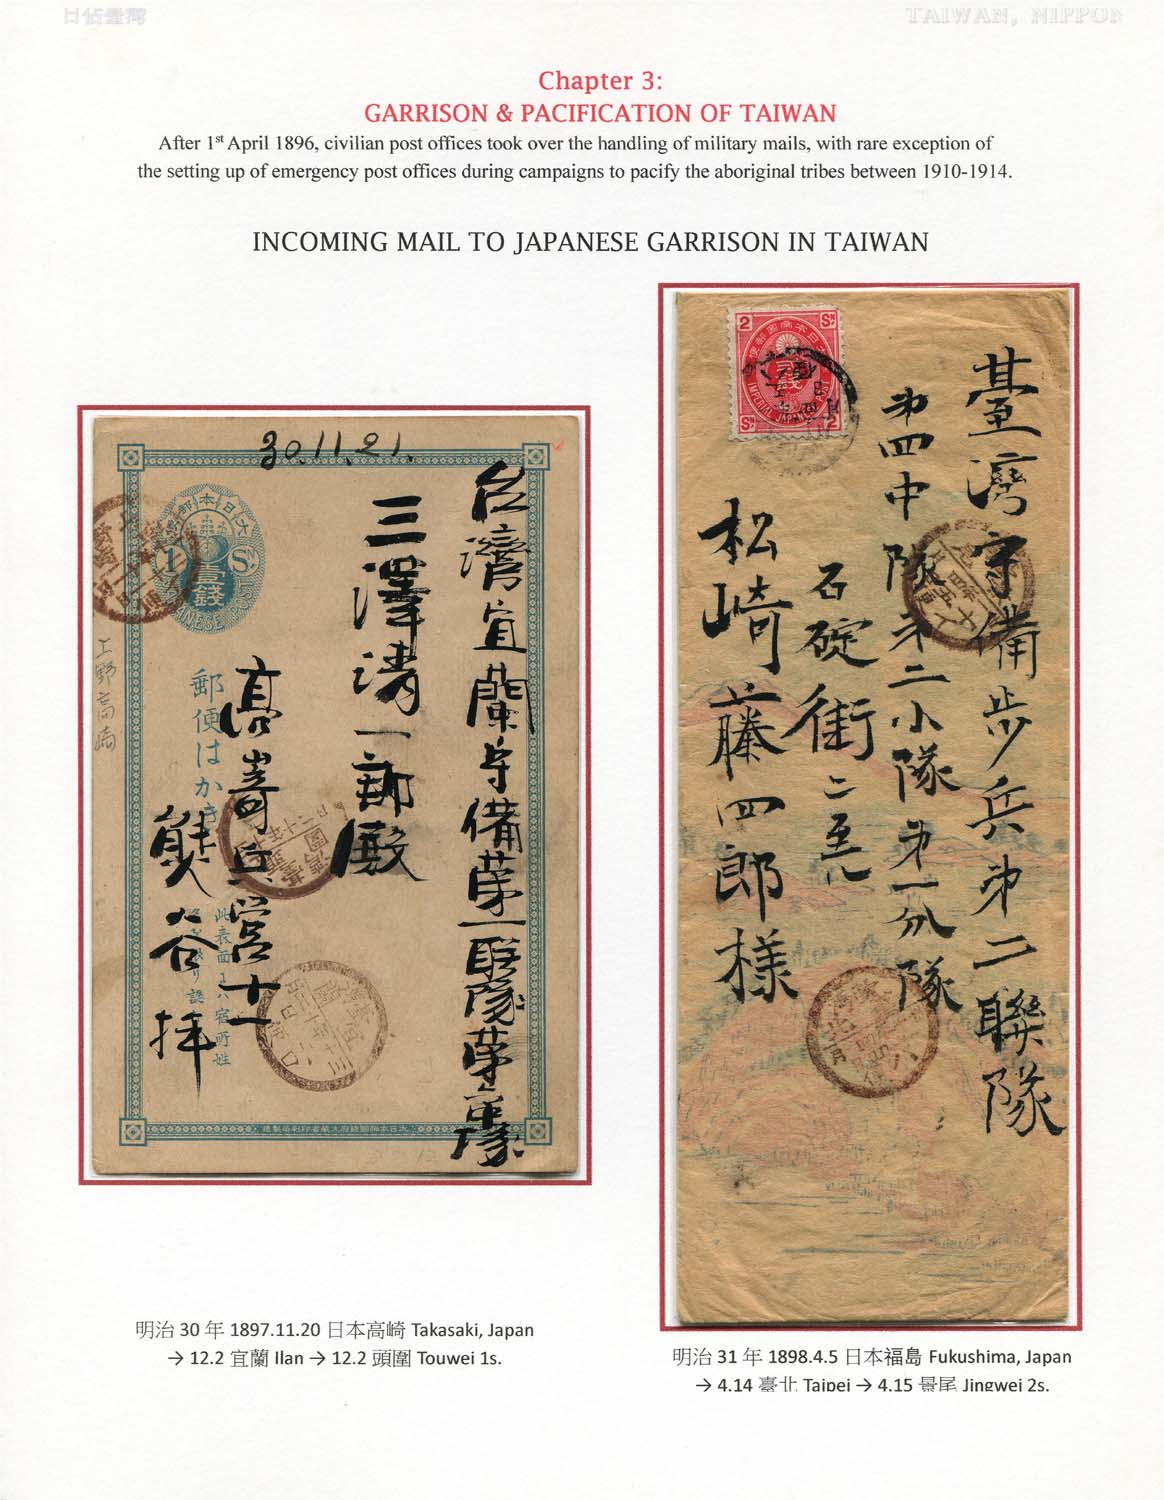 日佔臺灣
TAIWAN, NIPPON
Chapter 3:
GARRISON & PACIFICATION OF TAIWAN
After 1st April 1896, civilian post offices took over the handling of military mails, with rare exception of
the setting up of emergency post offices during campaigns to pacify the aboriginal tribes between 1910-1914.
INCOMING MAIL TO JAPANESE GARRISON IN TAIWAN
30.11.21.
台灣宜蘭守備第一聯隊第三中隊
三澤清一郎殿
高崎兵営十一
熊谷拝
上野高崎
大日本郵便
1 Sn
壹錢
郵便はかき
2 Sn
大日本帝國郵便
IMPERIAL JAPANESE
Sn 2
臺灣守備步兵第二聯隊
第四中隊第二小隊第一分隊
石碇街
松崎藤四郎様
明治 30 年 1897.11.20 日本高崎 Takasaki, Japan
→ 12.2 宜蘭 Ilan → 12.2 頭圍 Touwei 1s.
明治 31 年 1898.4.5 日本福島 Fukushima, Japan
→ 4.14 臺北 Taipei → 4.15 景尾 Jingwei 2s.